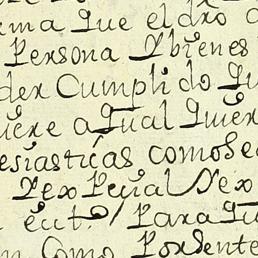 rma que el dro a
Persona Ybienes
der Cumpli do Qu
uiere aqual quier
lesiasticas comose
Pex Peual Sex
ecut. Para qu
n como Pondente